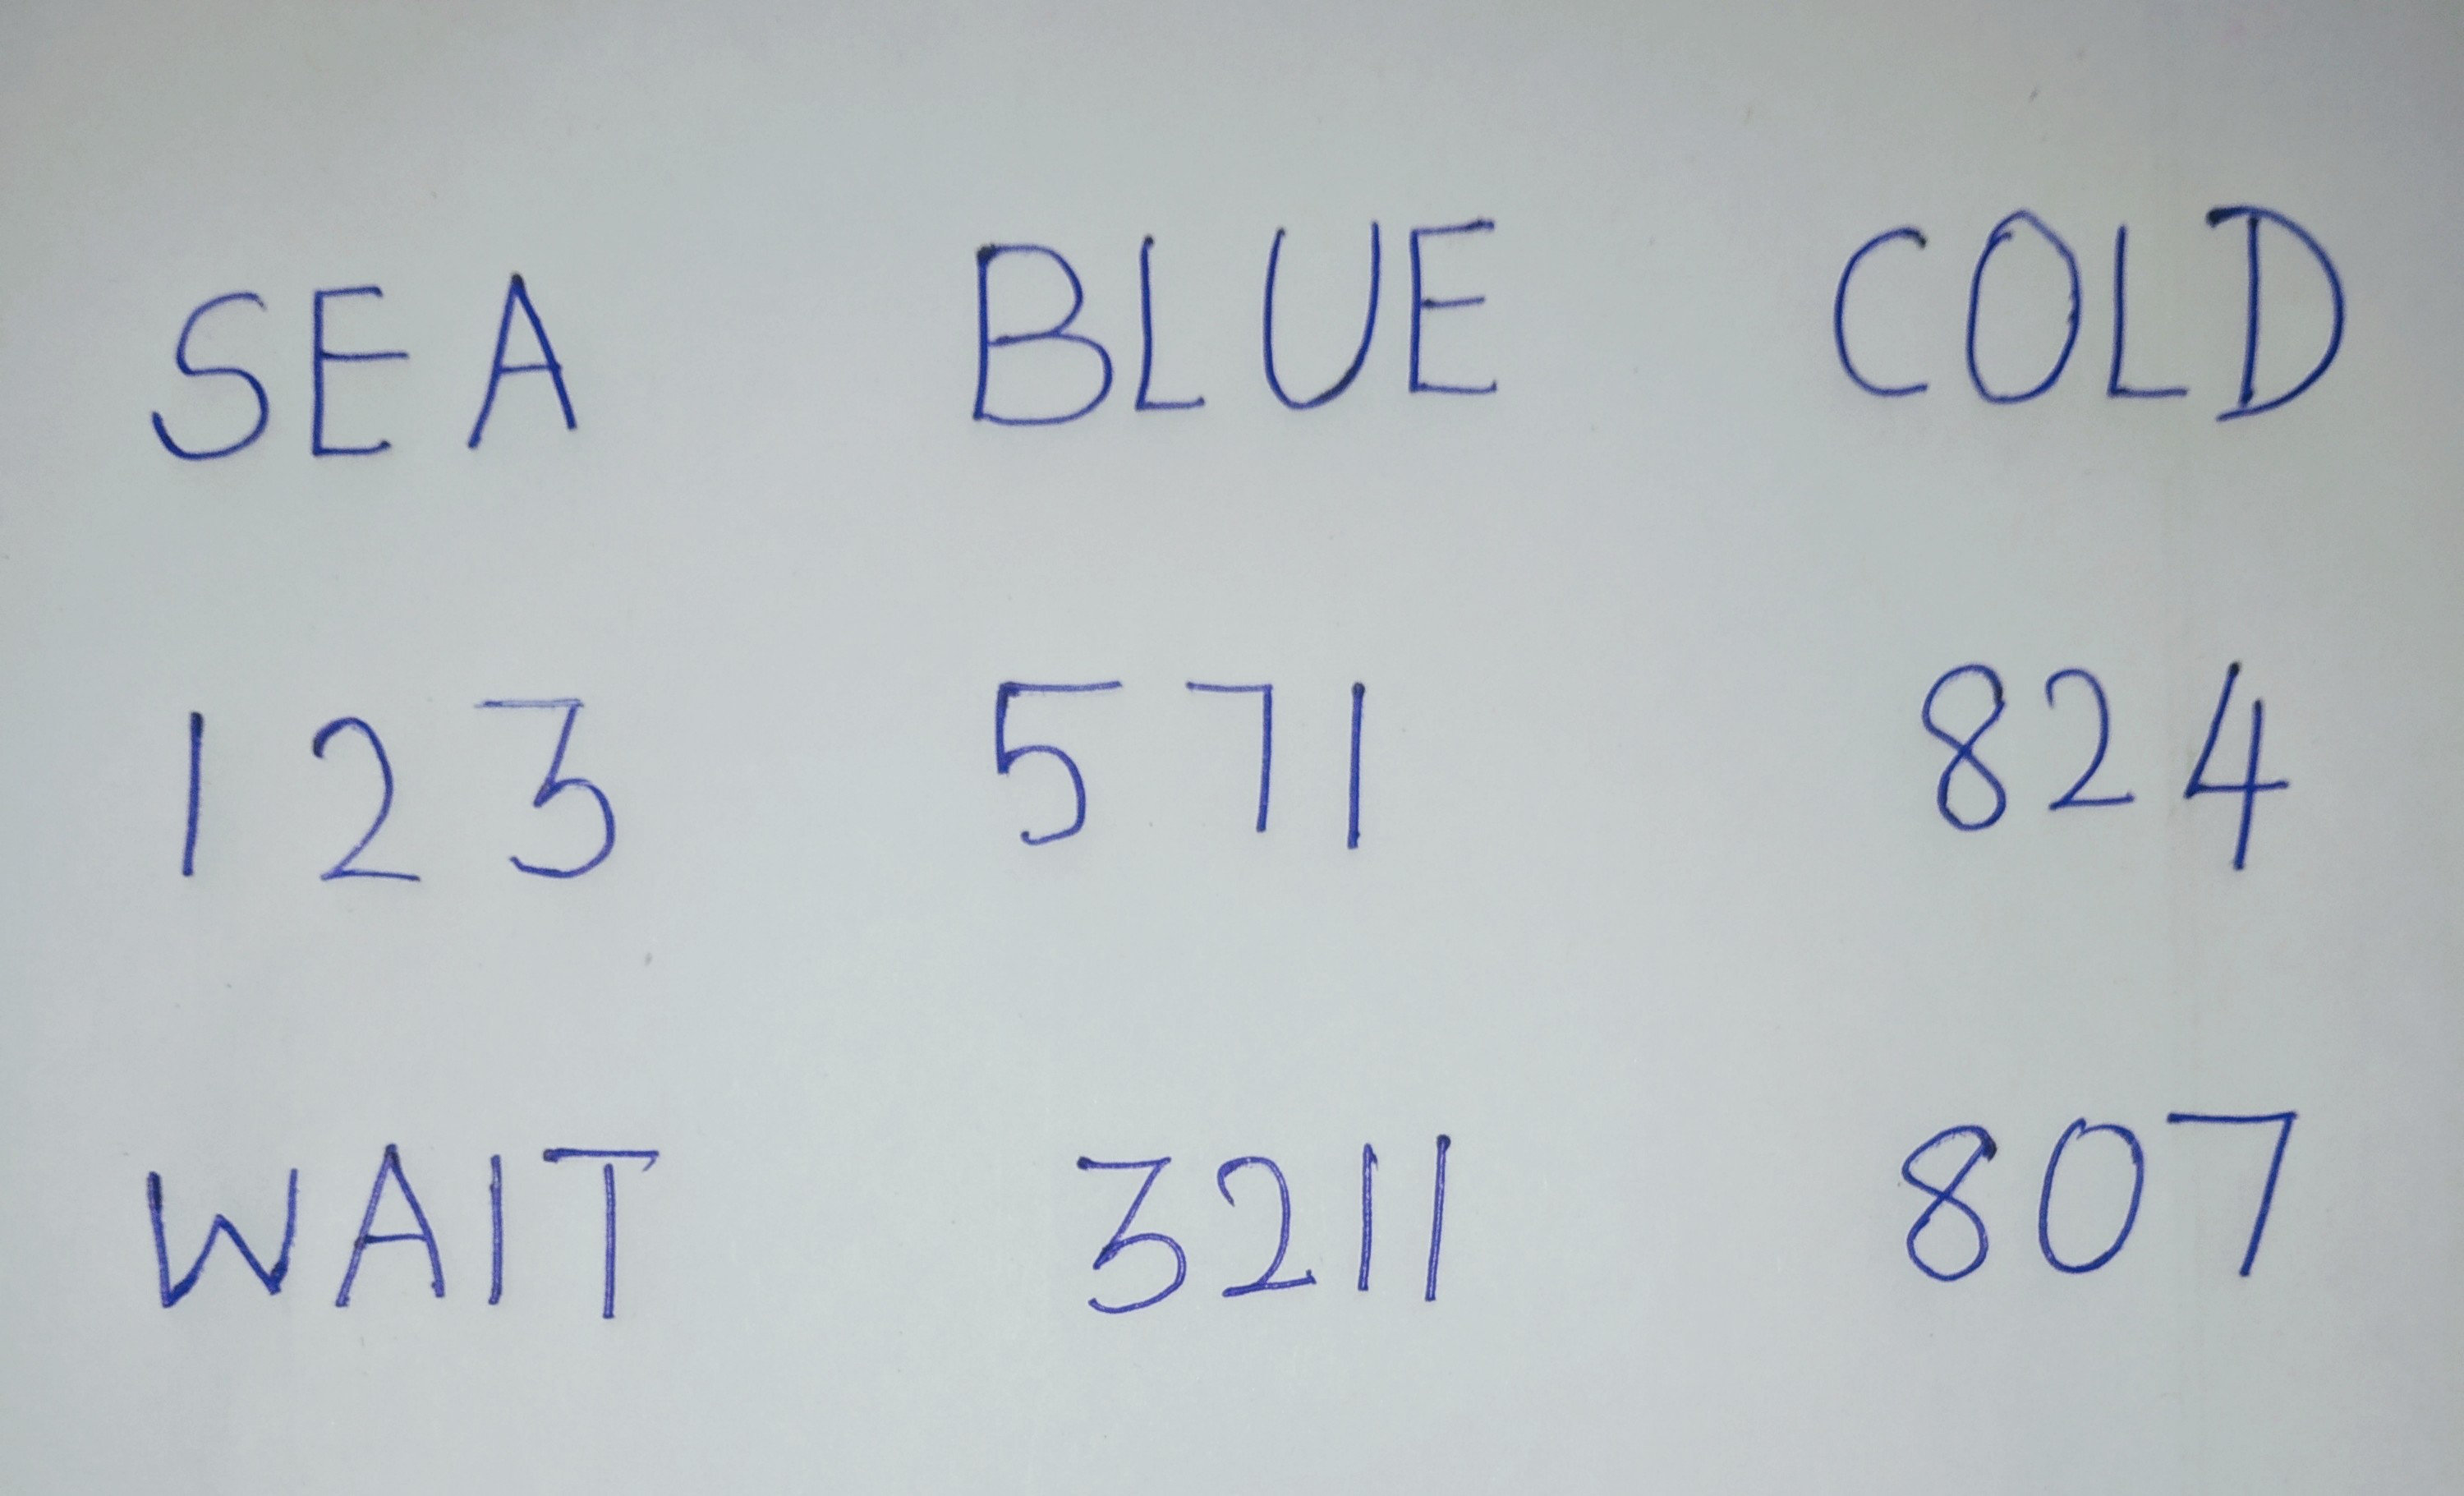 SEA BLUE COLD
123 571 824
WAIT 3211 807